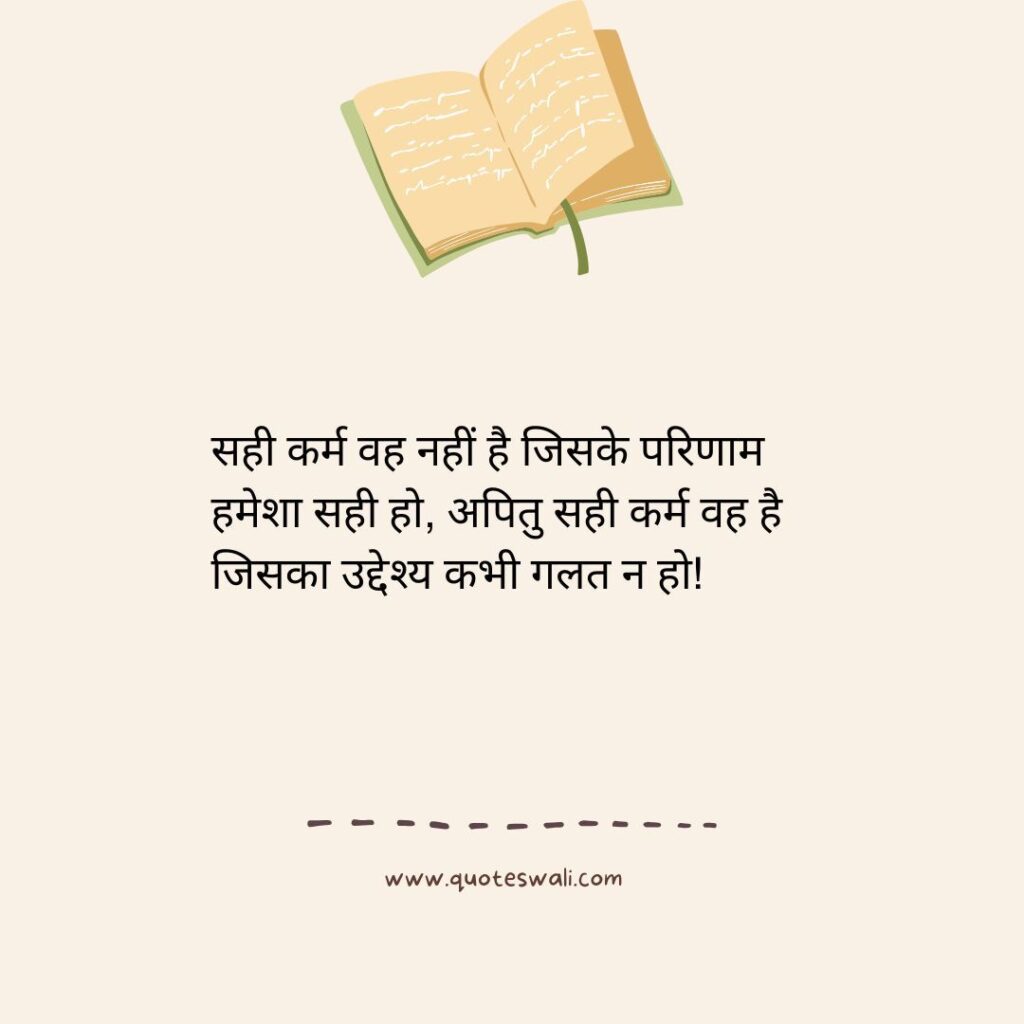 सही कर्म वह नहीं है जिसके परिणाम
हमेशा सही हो, अपितु सही कर्म वह है
जिसका उद्देश्य कभी गलत न हो!
www.quoteswali.com